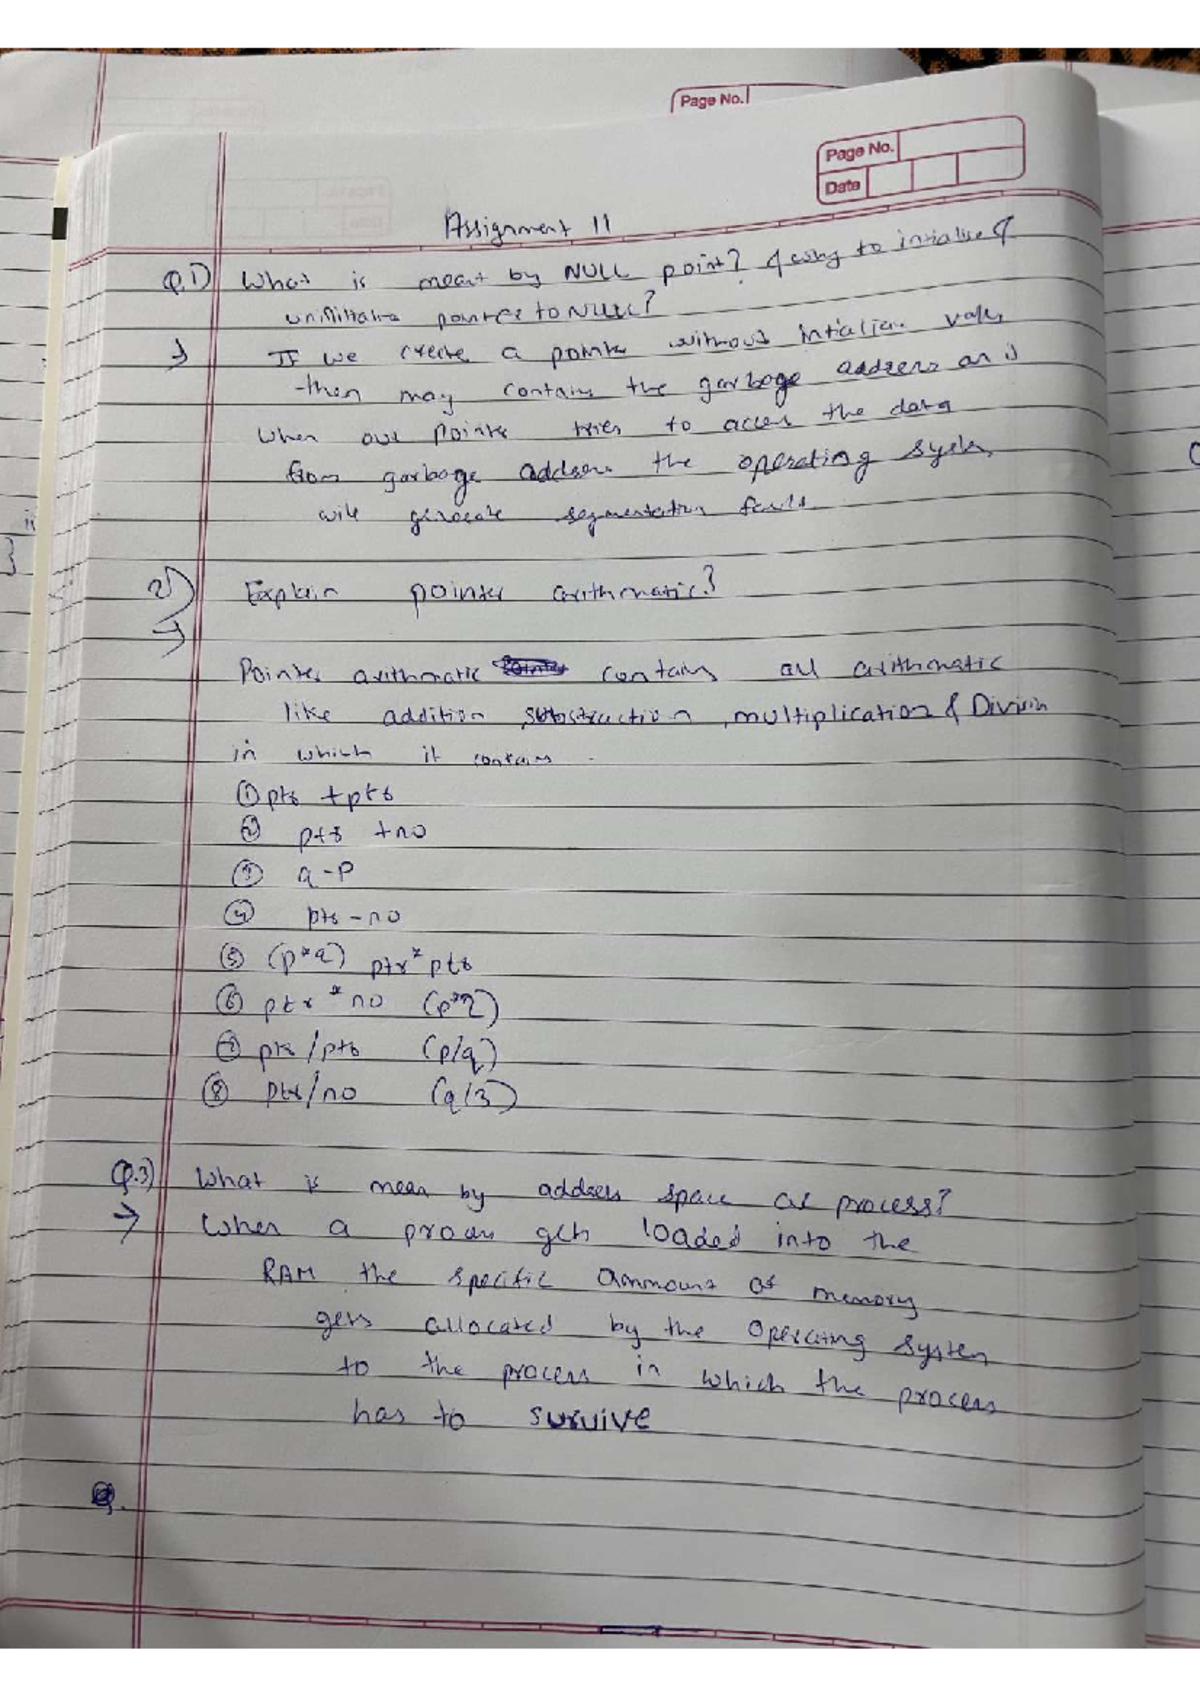 Page No.
Page No.
Date
Assignment 11
Q.1) What is meant by NULL point? & why to intialise &
pointer to NULL?
→ If we create a pointer without intialise value
then may contains the garbage address and
when our pointer tries to access the data
from garbage address the operating system
will generate segmentation fault
2) Explain pointer arithmatic?
→
Pointer arithmatic contains all arithmatic
like addition, substraction, multiplication & Division
in which it contains
① ptr + ptr
② ptr + no
③ q - p
④ ptr - no
⑤ (p*q) ptr * ptr
⑥ ptr * no (p*2)
⑦ ptr / ptr (p/q)
⑧ ptr/no (q/3)
Q.3) What is mean by address space of process?
→ When a process gets loaded into the
RAM the specific ammount of memory
gets allocated by the operating system
to the process in which the process
has to survive